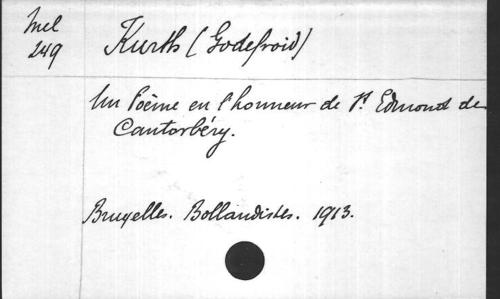 Mel
249
Kurth (Godefroid)
Un Poème en l'honneur de St Edmond de
Cantorbéry.
Bruxelles. Bollandistes. 1913.